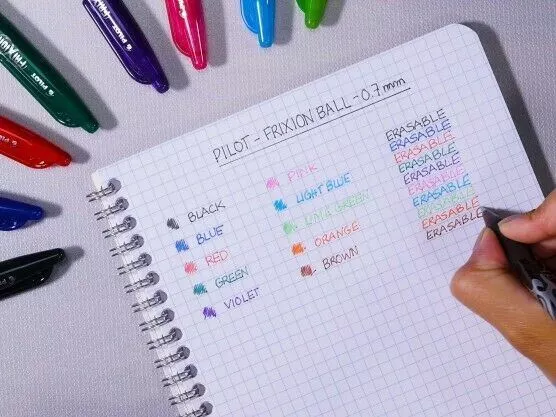 PILOT - FRIXION BALL - 0.7mm
BLACK
BLUE
RED
GREEN
VIOLET
PINK
LIGHT BLUE
LIMA GREEN
ORANGE
BROWN
ERASABLE
ERASABLE
ERASABLE
ERASABLE
ERASABLE
ERASABLE
ERASABLE
ERASABLE
ERASABLE
ERASABLE
PILOT
FRIXION
PILOT
PILOT
PILOT